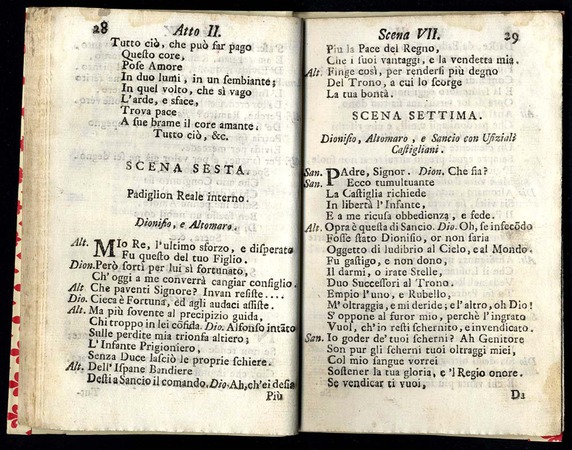 28 Atto II.
Tutto ciò, che può far pago
Questo core,
Pose Amore
In duo lumi, in un sembiante;
In quel volto, che sì vago
L'arde, e sface,
Trova pace
A sue brame il core amante.
Tutto ciò, &c.
SCENA SESTA.
Padiglion Reale interno.
Dionisio, e Altomaro.
Alt. MIo Re, l'ultimo sforzo, e disperato
Fu questo del tuo Figlio.
Dion. Però sorti per lui sì fortunato,
Ch'oggi a me converrà cangiar consiglio.
Alt Che paventi Signore? Invan resiste....
Dio. Cieca è Fortuna, ed agli audaci assiste.
Alt. Ma più sovente al precipizio guida,
Chi troppo in lei cõfida. Dio. Alfonso intãto
Sulle perdite mia trionfa altiero;
L'Infante Prigioniero,
Senza Duce lasciò le proprie schiere.
Alt. Dell'Ispane Bandiere
Desti a Sancio il comando. Dio. Ah, ch'ei desia
Più
Scena VII. 29
Piu la Pace del Regno,
Che i suoi vantaggi, e la vendetta mia.
Alt. Finge così, per rendersi più degno
Del Trono, a cui lo scorge
La tua bontà.
SCENA SETTIMA.
Dionisio, Altomaro, e Sancio con Ufiziali
Castigliani.
San. PAdre, Signor. Dion. Che sia?
San. Ecco tumultuante
La Castiglia richiede
In libertà l'Infante,
E a me ricusa obbedienza, e fede.
Alt. Opra è questa di Sancio. Dio. Oh, se infecõdo
Fosse stato Dionisio, or non saria
Oggetto di ludibrio al Cielo, e al Mondo.
Fu gastigo, e non dono,
Il darmi, o irate Stelle,
Duo Successori al Trono.
Empio l'uno, e Rubello,
M'oltraggia, e mi deride; e l'altro, oh Dio!
S'oppone al furor mio, perchè l'ingrato
Vuol, ch'io resti schernito, e invendicato.
San. Io goder de' tuoi scherni? Ah Genitore
Son pur gli scherni tuoi oltraggi miei,
Col mio sangue vorrei
Sostener la tua gloria, e 'l Regio onore.
Se vendicar ti vuoi,
Da